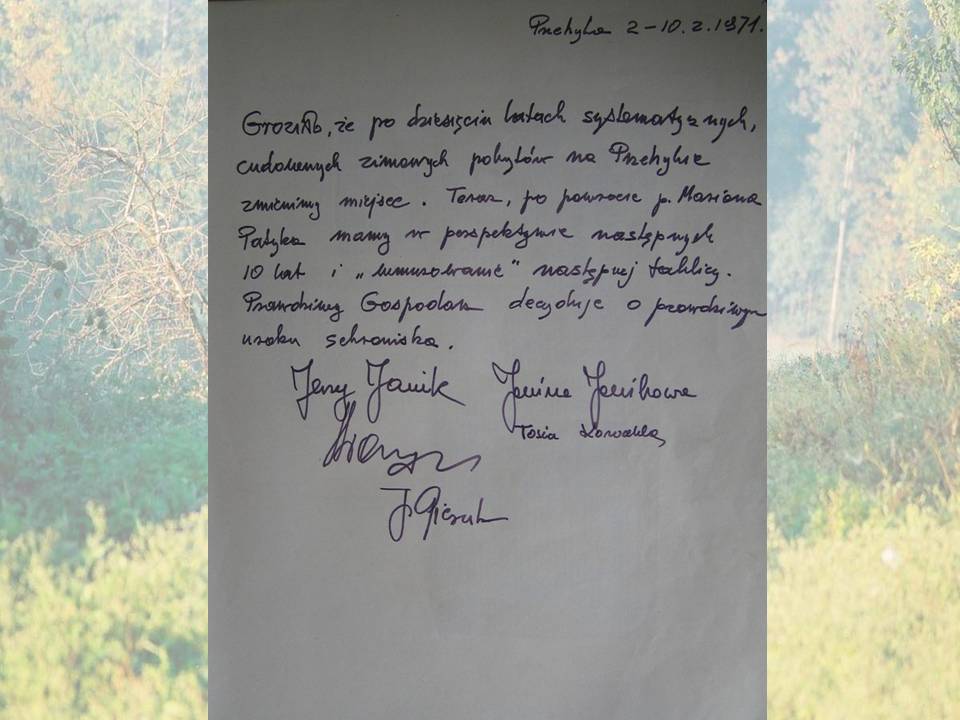 Przehyba 2-10.2.1971.
Groziło, że po dziesięciu latach systematycznych,
cudownych zimowych pobytów na Przehybie
zmienimy miejsce. Teraz, po powrocie p. Mariana
Patyka mamy w perspektywie następnych
10 lat i „wmurowanie” następnej tablicy.
Prawdziwy Gospodarz decyduje o prawdziwym
uroku schroniska.
Jerzy Janik Janina Janikowa
Tosia
J